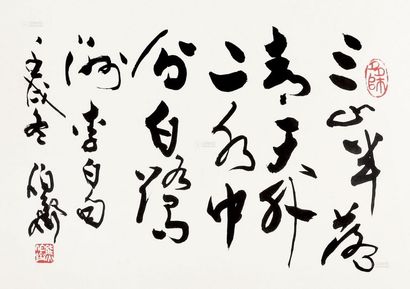 三山半落
青天外
二水中
分白鹭
洲李白句
壬戌冬伯齊